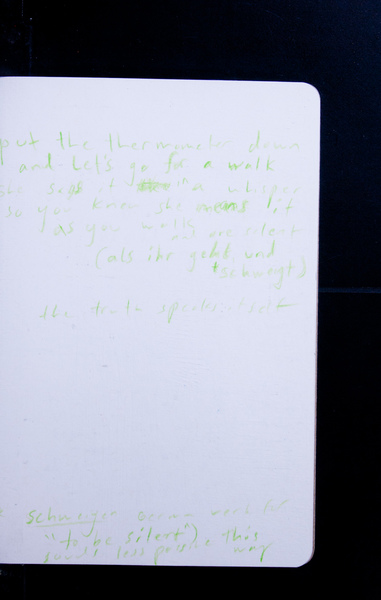 put the thermometer down
and let's go for a walk
she says it in a whisper
so you know she means it
as you walk
and are silent
(als ihr geht und
schweigt)
the truth speaks itself
schweigen German verb for
"to be silent") this
sounds less passive way